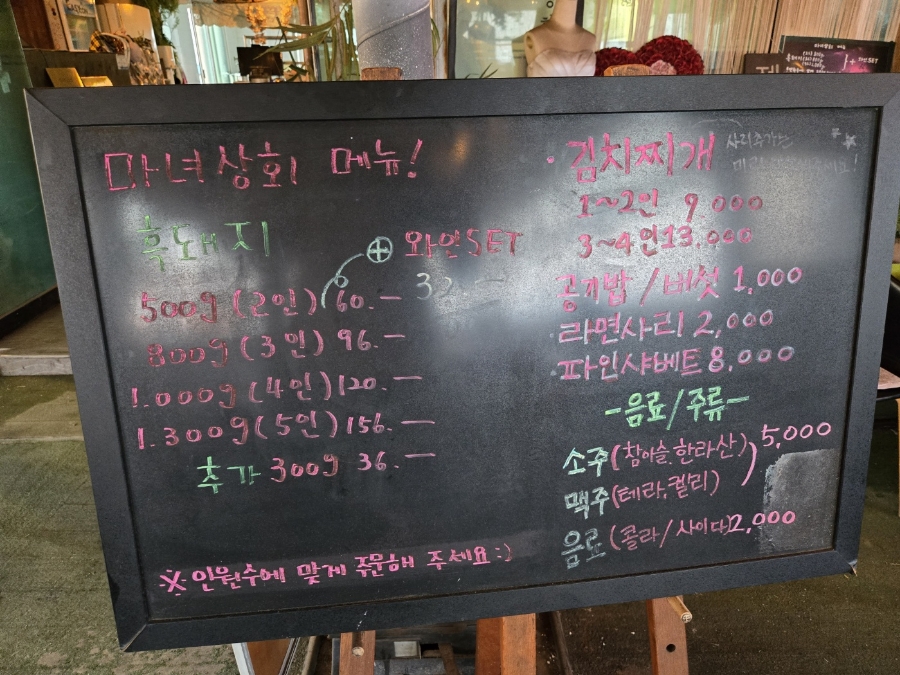 마녀상회 메뉴!
흑돼지
⊕ 와인SET
32.—
500g (2인) 60.—
800g (3인) 96.—
1.000g (4인) 120.—
1.300g (5인) 156.—
추가 300g 36.—
※ 인원수에 맞게 주문해 주세요:)
· 김치찌개
사리추가는
1~2인 9,000
3~4인 13,000
공기밥 / 버섯 1,000
라면사리 2,000
파인샤베트 8,000
-음료/주류-
소주 (참이슬, 한라산) 5,000
맥주 (테라, 켈리)
음료 (콜라 / 사이다) 2,000